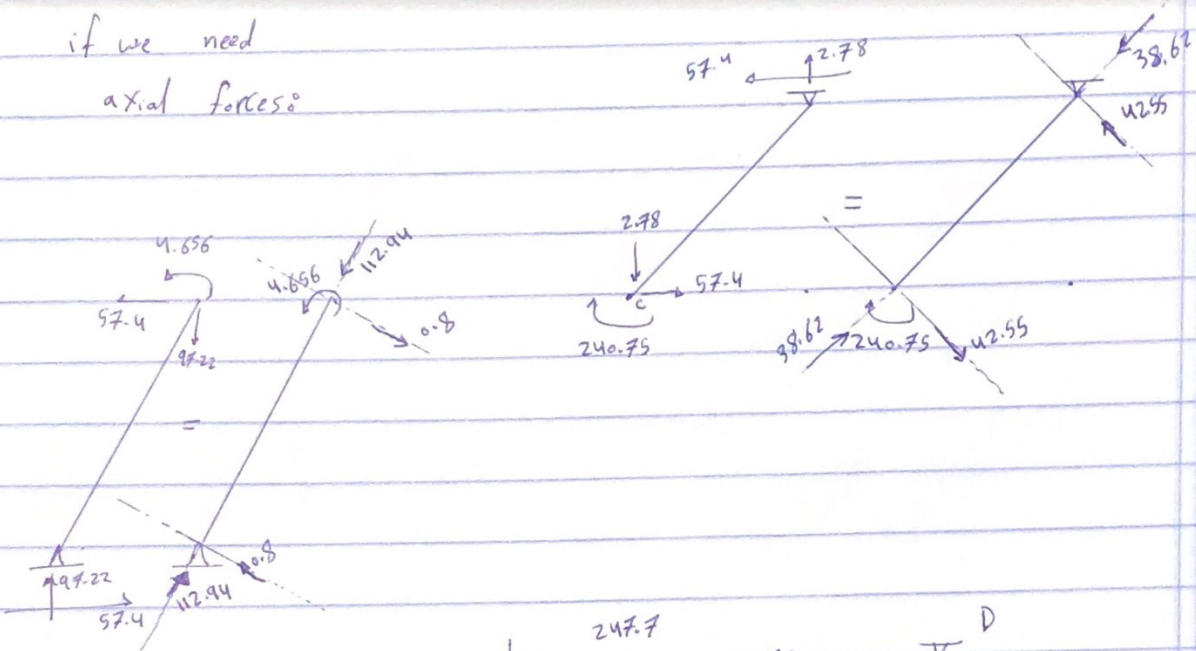 if we need
axial forces:
57.4
2.78
38.62
42.55
=
4.656
57.4
97.22
4.656
112.94
0.8
2.78
57.4
c
240.75
38.62
240.75
42.55
=
0.8
97.22
57.4
112.94
247.7
D